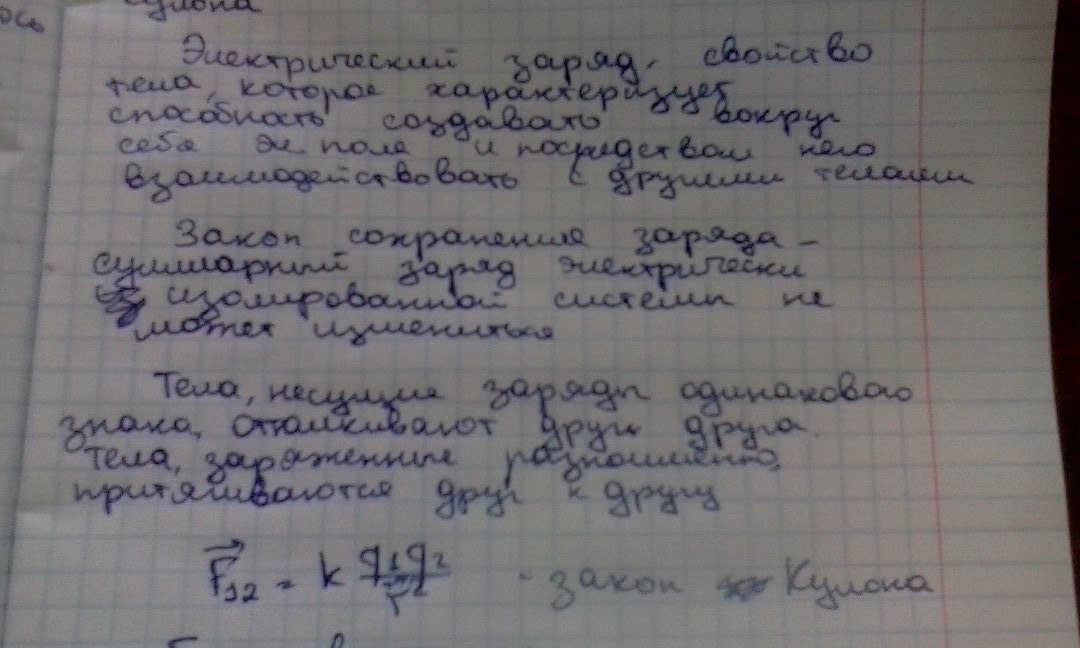 Кулона
Электрический заряд - свойство
тела, которое характеризует
способность создавать вокруг
себя эл поле и посредством него
взаимодействовать с другими телами
Закон сохранения заряда -
суммарный заряд электрически
изолированной системы не
может измениться
Тела, несущие заряды одинакового
знака, отталкивают друг друга.
Тела, заряженные разноименно,
притягиваются друг к другу
F₁₂ = k q₁q₂/r² - закон Кулона